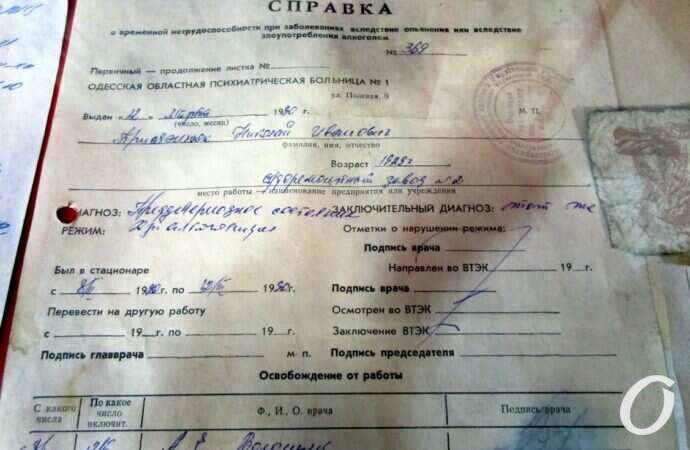 СПРАВКА
о временной нетрудоспособности при заболеваниях вследствие опьянения или вследствие
злоупотребления алкоголем
№ 369
Первичный — продолжение листка №
ОДЕССКАЯ ОБЛАСТНАЯ ПСИХИАТРИЧЕСКАЯ БОЛЬНИЦА № 1
ул. Полевая, 9
Выдан «12 марта 1980 г.
(число, месяц)
М. П.
Николай Иванович
фамилия, имя, отчество
Возраст 1929 г
Судоремонтный завод №2
место работы — наименование предприятия или учреждения
ДИАГНОЗ: состояние ЗАКЛЮЧИТЕЛЬНЫЙ ДИАГНОЗ: тот же
РЕЖИМ: Отметки о нарушении режима:
Подпись врача
Был в стационаре Направлен во ВТЭК 19 г.
с 8/III 1980 г. по 12/III 1980 г. Подпись врача
Перевести на другую работу Осмотрен во ВТЭК
с 19 г. по 19 г. Заключение ВТЭК
Подпись главврача м п. Подпись председателя
Освобождение от работы
С какого числа По какое число включит. Ф., И., О. врача Подпись врача